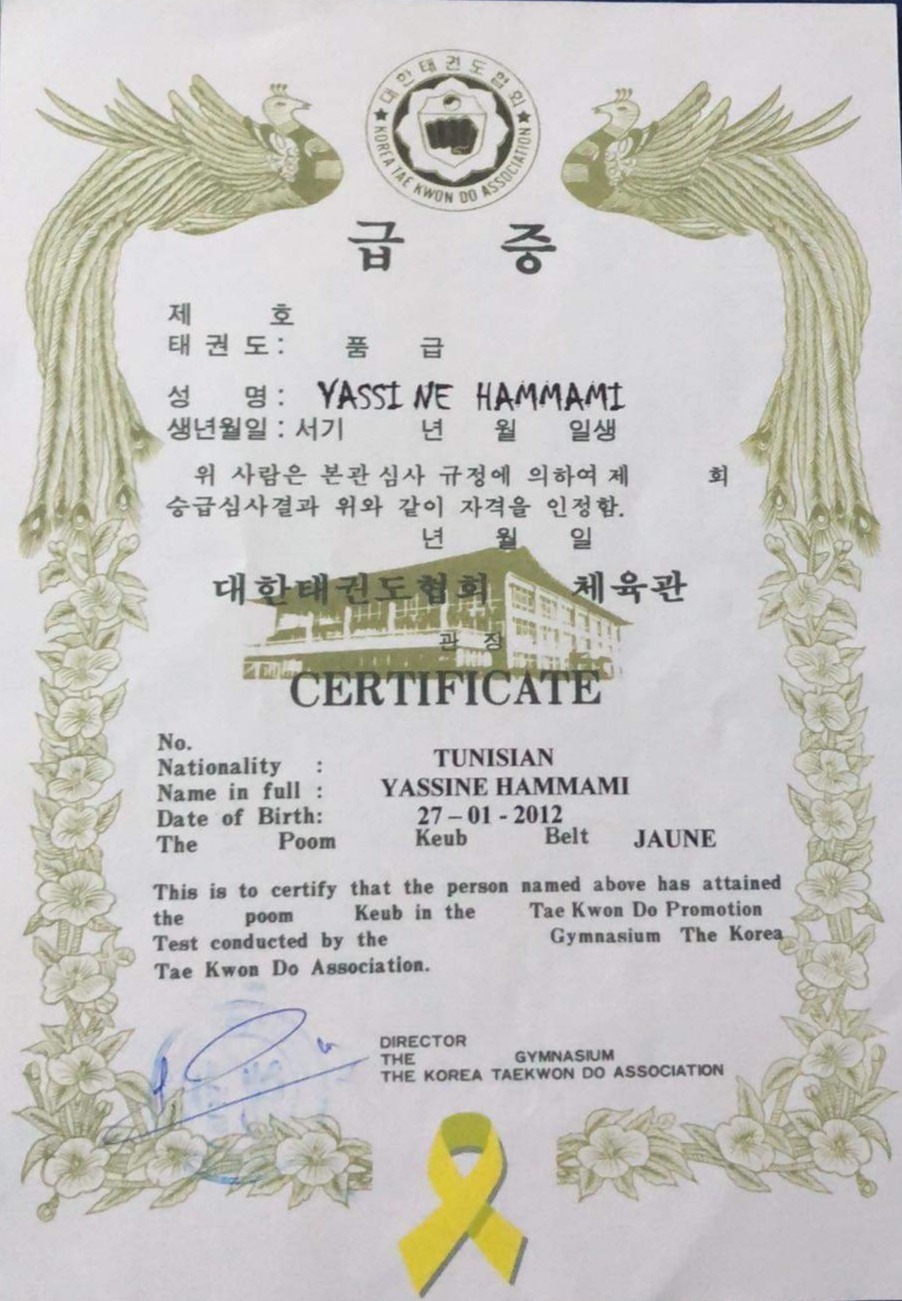 대한태권도협회
KOREA TAE KWON DO ASSOCIATION
급 증
제 호
태 권 도 : 품 급
성 명 : YASSINE HAMMAMI
생년월일 : 서기 년 월 일생
위 사람은 본관 심사 규정에 의하여 제 회
승급심사결과 위와 같이 자격을 인정함.
년 월 일
대한태권도협회 체육관
관 장
CERTIFICATE
No.
Nationality : TUNISIAN
Name in full : YASSINE HAMMAMI
Date of Birth: 27 – 01 - 2012
The Poom Keub Belt JAUNE
This is to certify that the person named above has attained
the poom Keub in the Tae Kwon Do Promotion
Test conducted by the Gymnasium The Korea
Tae Kwon Do Association.
DIRECTOR
THE GYMNASIUM
THE KOREA TAEKWON DO ASSOCIATION